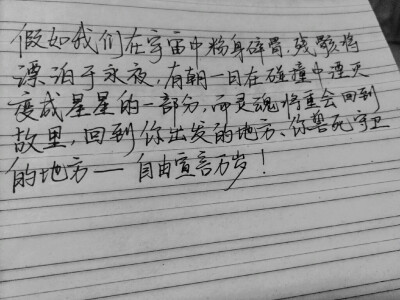 假如我们在宇宙中粉身碎骨,残骸将
漂泊于永夜,有朝一日在碰撞中湮灭
变成星星的一部分,而灵魂将重会回到
故里,回到你出发的地方、你誓死守卫
的地方——自由宣言万岁!